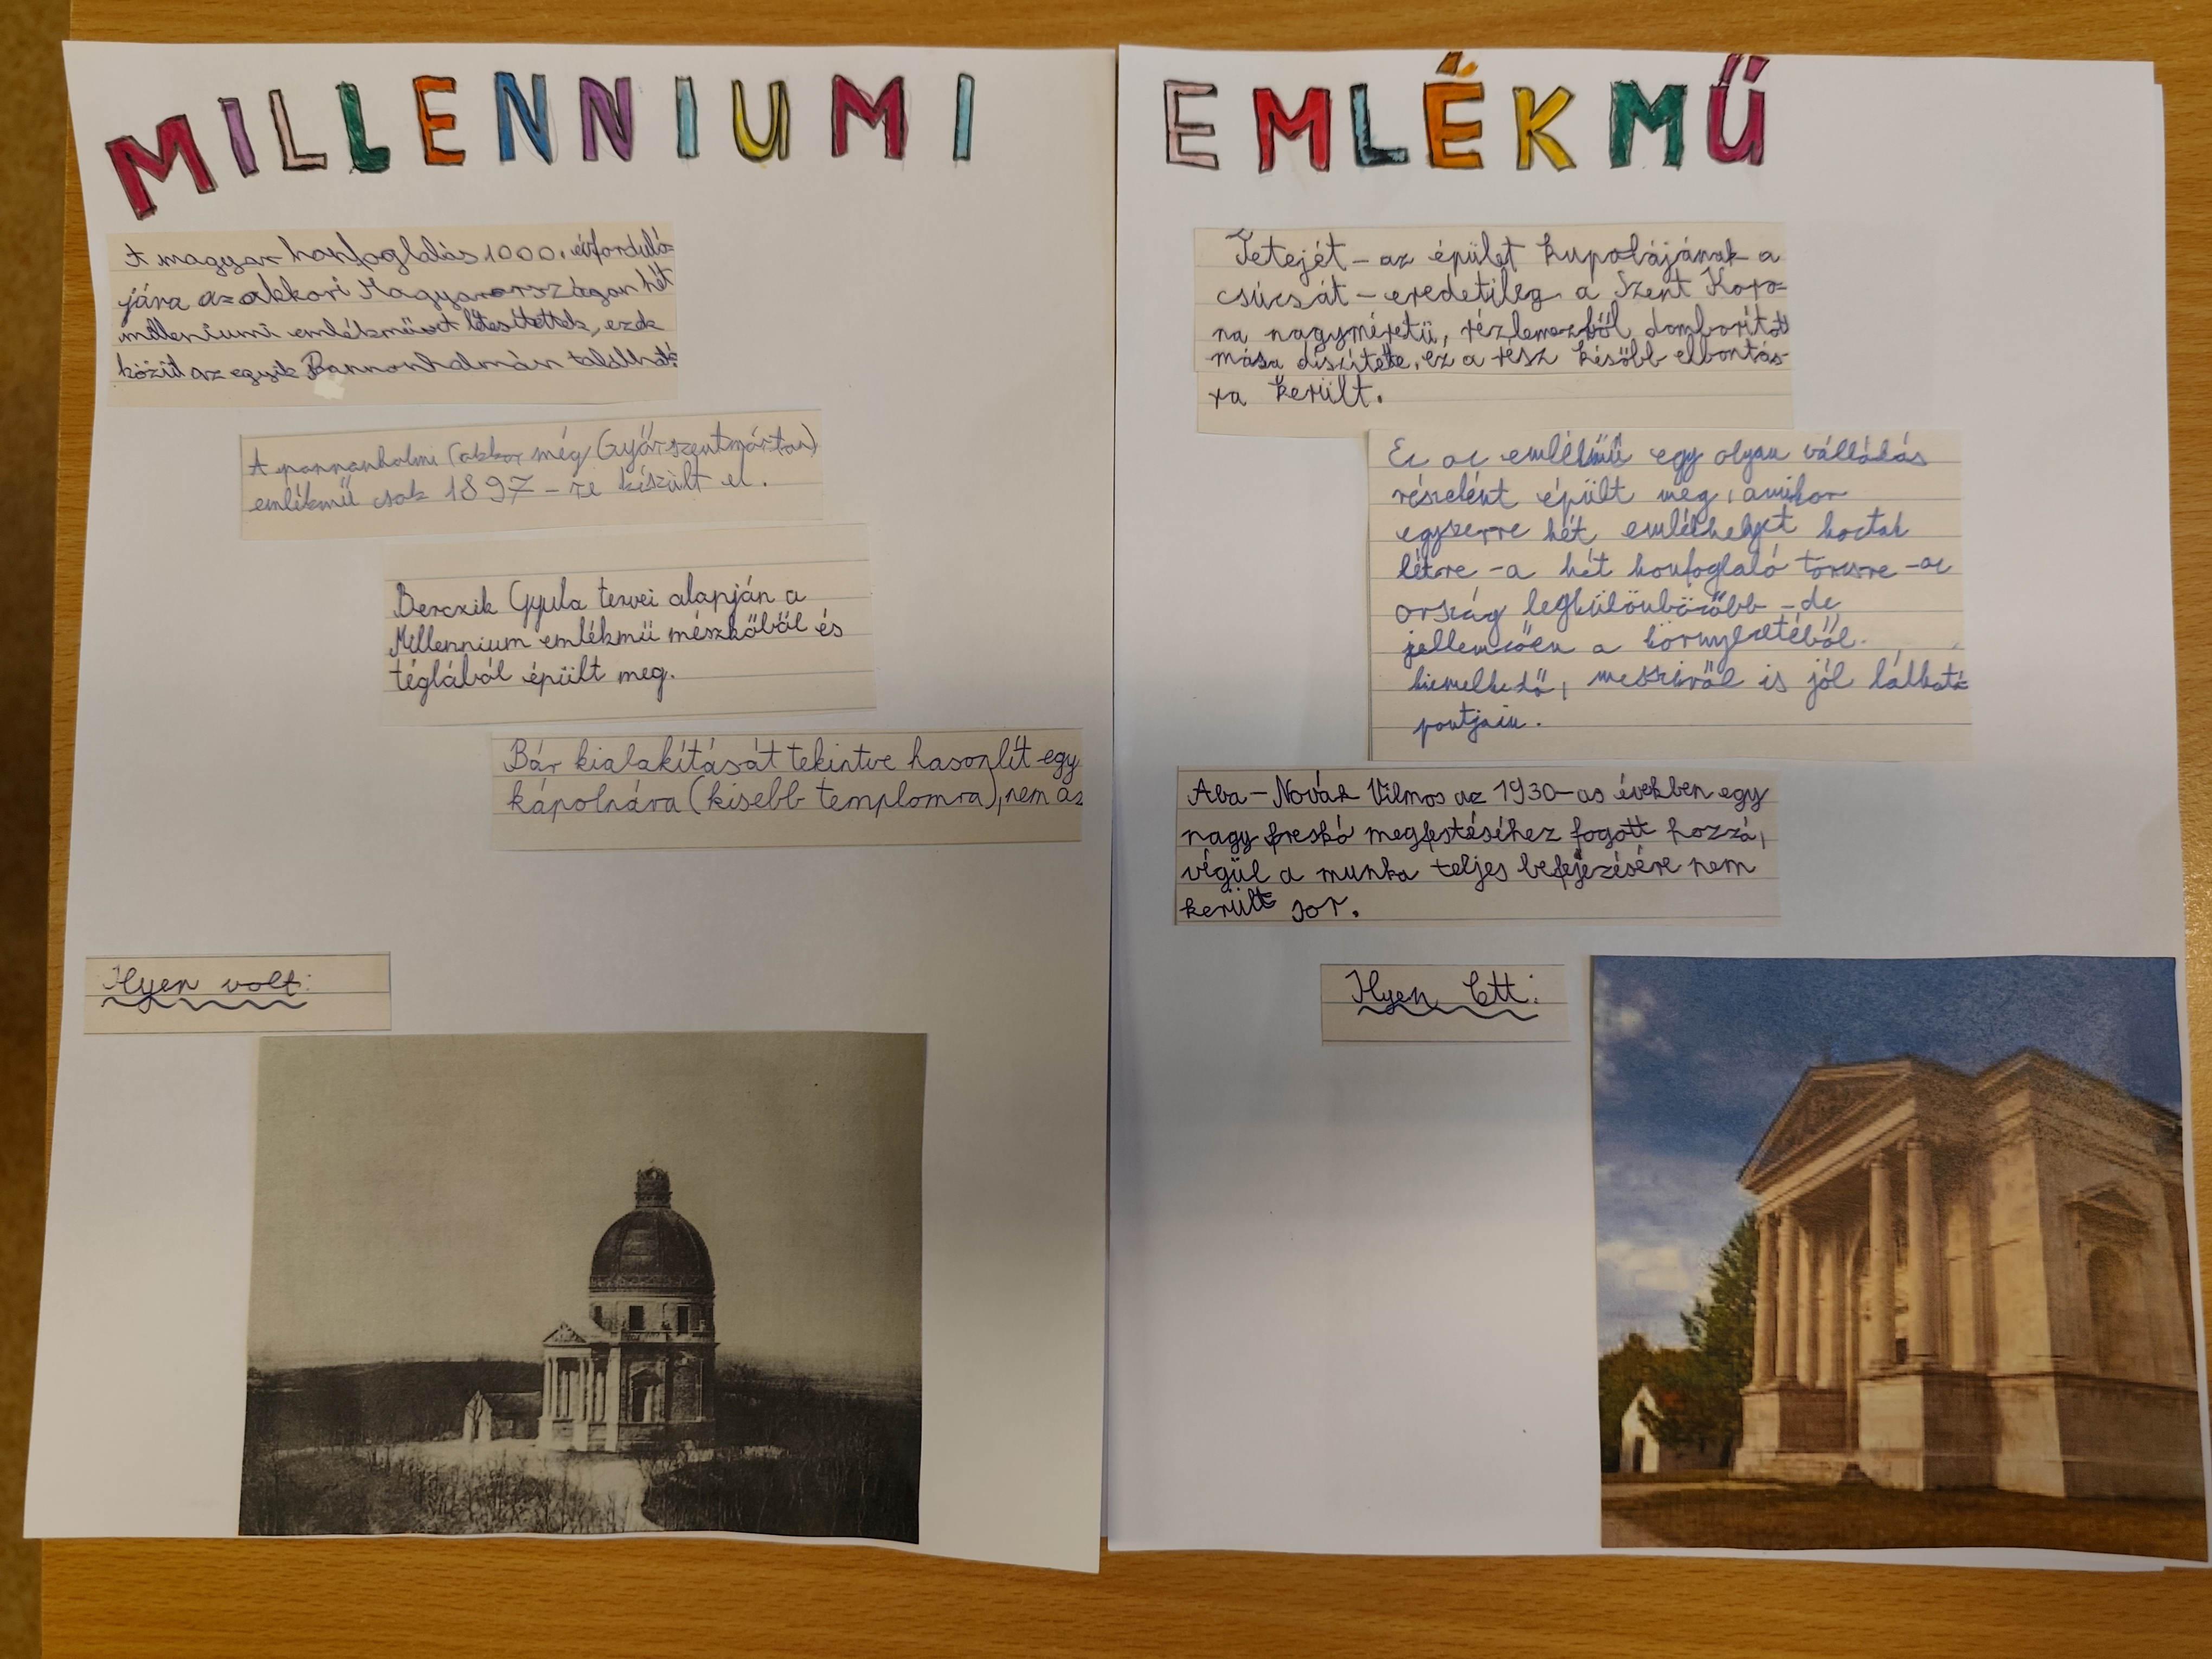 MILLENNIUMI
A magyar honfoglalás 1000. évforduló=
jára az akkori Magyarországon hét
milleniumi emlékművet létesítettek, ezek
közül az egyik Pannonhalmán található.
A pannonhalmi (akkor még Győrszentmárton)
emlékmű csak 1897-re készült el.
Berczik Gyula tervei alapján a
Millennium emlékmű mészkőből és
téglából épült meg.
Bár kialakítását tekintve hasonlít egy
kápolnára (kisebb templomra), nem az
Ilyen volt:
EMLÉKMŰ
Tetejét - az épület kupolájának a
csúcsát - eredetileg a Szent Koro=
na nagyméretű, rézlemezből domborított
mása díszítette, ez a rész később elbontás-
ra került.
Ez az emlékmű egy olyan vállalás
részeként épült meg, amikor
egyszerre hét emlékhelyet hoztak
létre - a hét honfoglaló törzsre - az
ország legkülönbözőbb - de
jellemzően a környezetéből
kiemelkedő, messziről is jól látható
pontjain.
Aba-Novák Vilmos az 1930-as években egy
nagy freskó megfestéséhez fogott hozzá,
végül a munka teljes befejezésére nem
került sor.
Ilyen lett: